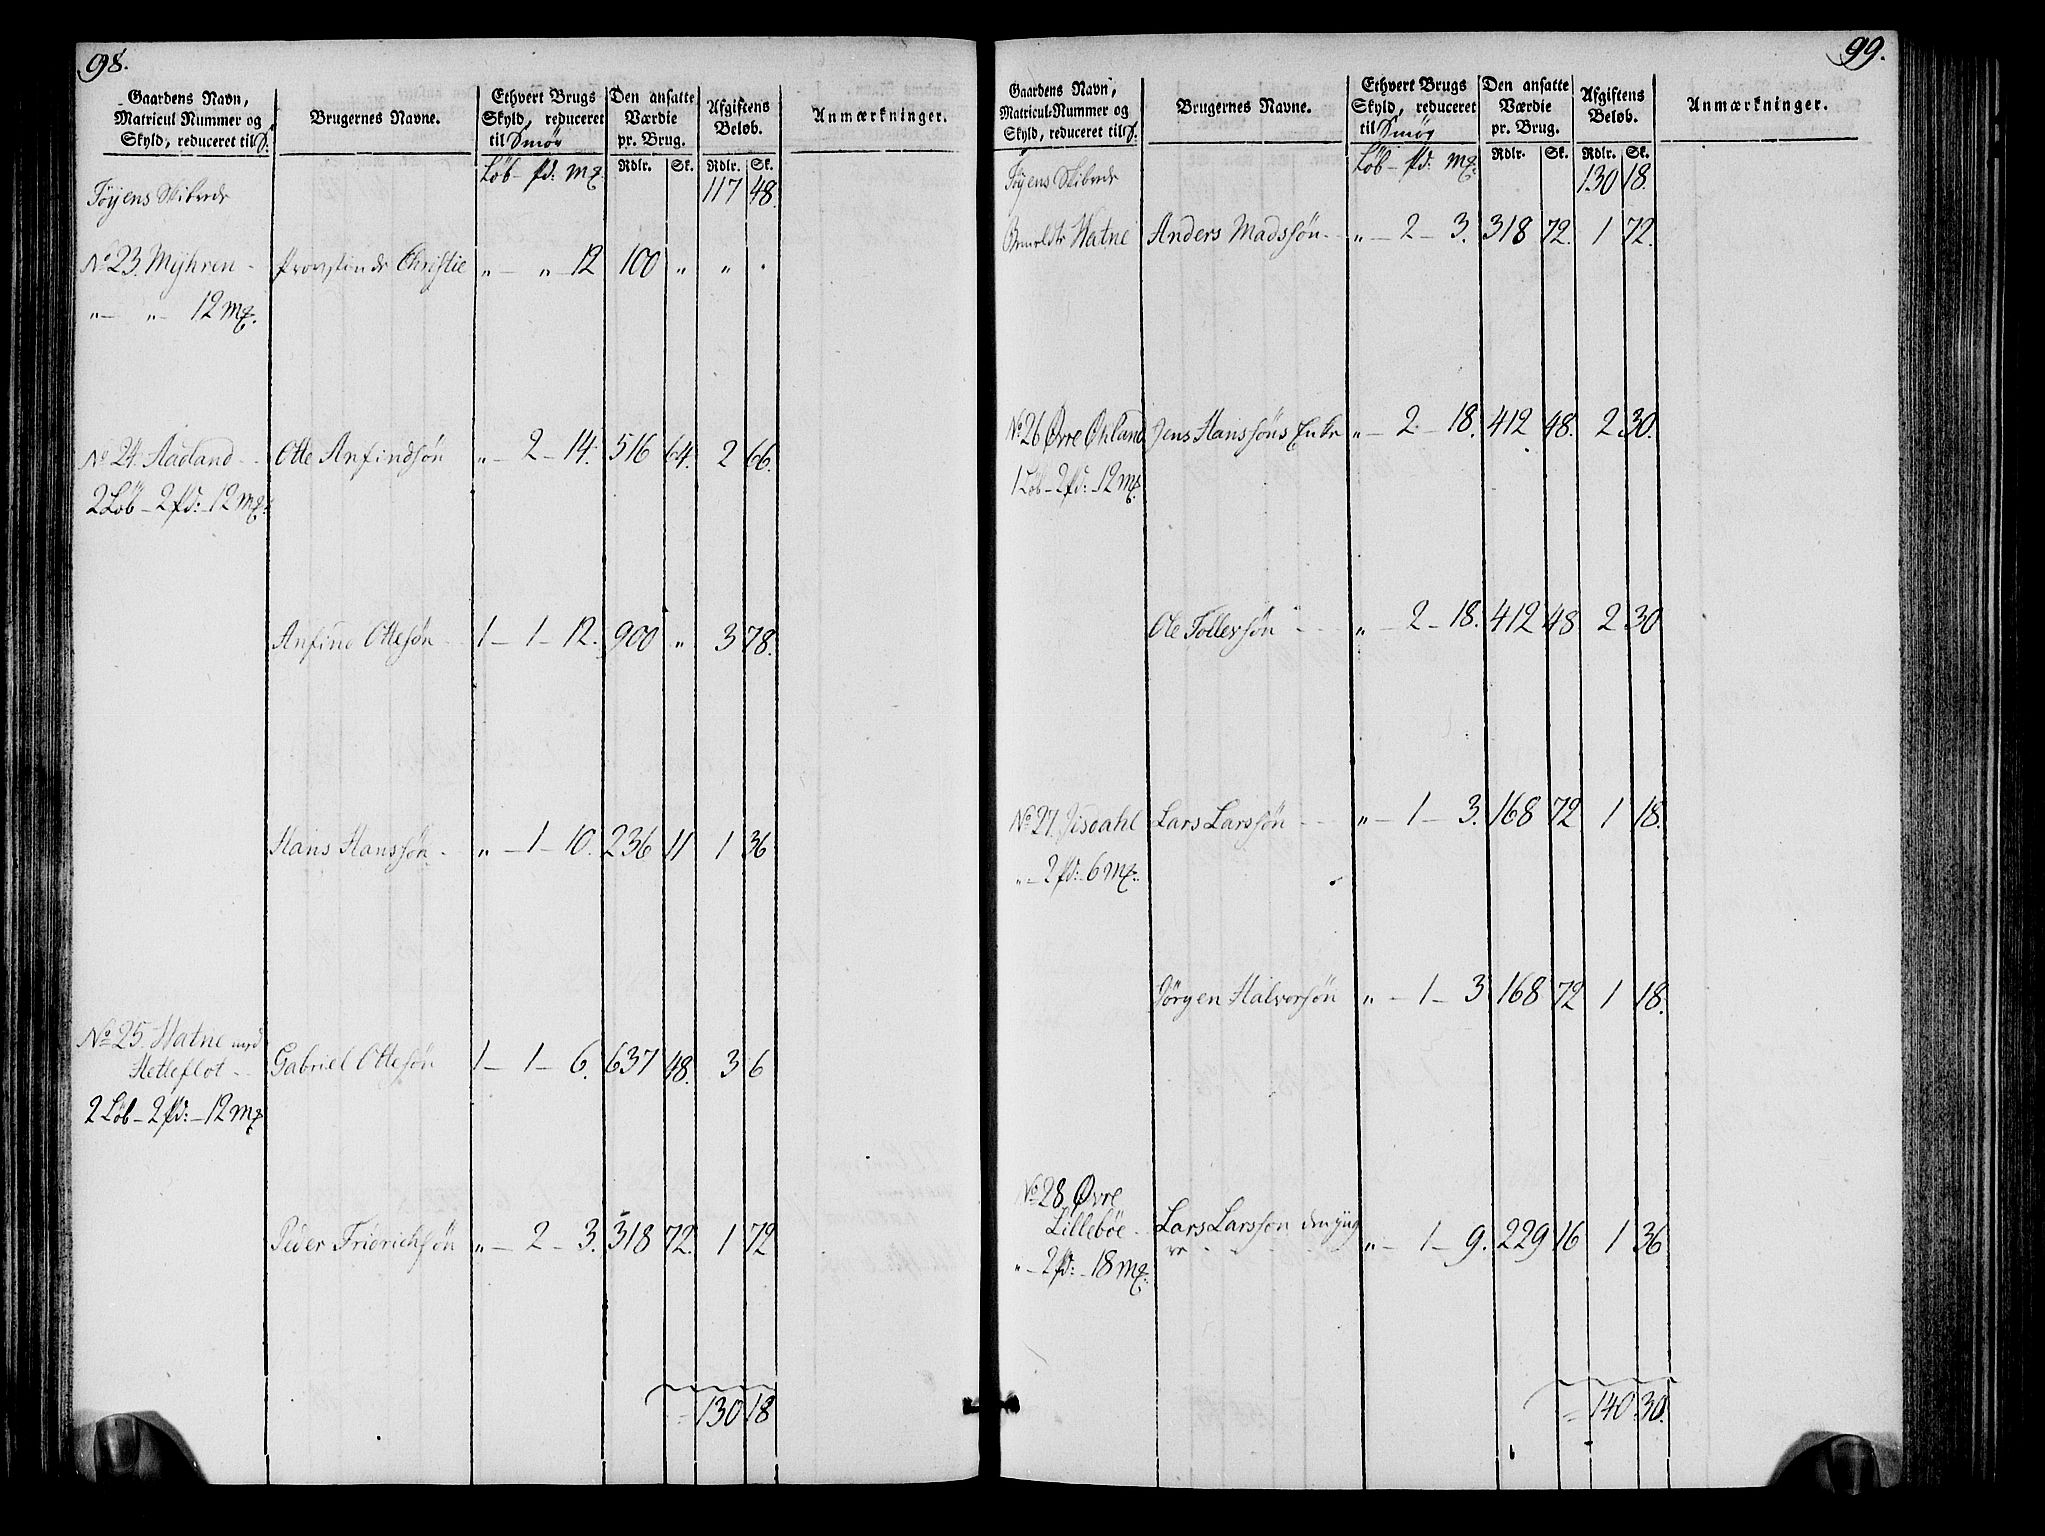 98.
Gaardens Navn, Matricul Nummer og Skyld, reduceret til S:
Brugernes Navne.
Ethvert Brugs Skyld, reduceret til Smør
Den ansatte Værdie pr. Brug.
Afgiftens Beløb.
Anmærkninger.
Løb - pd: mg. Rdlr. Sk. Rdlr. Sk.
Føyens Skibrede 117 48.
No 23. Myhren - Provstinde Christie „ - „ 12 100 „ „ .
„ - „ - 12 mg.
No 24. Aadland - Otte Anfindsøn „ - 2 - 14. 516 64. 2 66.
2 Løb - 2 pd: - 12 mg:
Anfind Ottesøn 1 - 1 - 12. 900 „ 3 78.
Hans Hanssøn - „ - 1 - 10. 236 11 1 36
No 25. Hatne med
Hetleflot - Gabriel Ottesøn 1 - 1 - 6. 637 48. 3 6
2 Løb - 2 pd: - 12 mg
Peder Fridrichsøn „ - 2 - 3. 318 72. 1 72
= 130 18
99.
Gaardens Navn, Matricul-Nummer og Skyld, reduceret til S.
Brugernes Navne.
Ethvert Brugs Skyld, reduceret til Smør
Den ansatte Værdie pr. Brug.
Afgiftens Beløb.
Anmærkninger.
Løb - pd: mg. Rdlr. Sk. Rdlr. Sk.
Føyens Skibrede 130 18.
Hatne Anders Madssøn - „ - 2 - 3. 318 72. 1 72.
No 26 Øvre Øhland Jens Hanssøns Enke „ - 2 - 18. 412 48. 2 30.
1 Løb - 2 pd: - 12 mg.
Ole Tollevsøn - „ - 2 - 18. 412 48 2 30
No 27. Jisdahl Lars Larssøn - „ - 1 - 3. 168 72 1 18.
„ - 2 pd: - 6 mg.
Jörgen Halvorsøn „ - 1 - 3. 168 72 1 18.
No 28. Øvre
Lillebøe - Lars Larssøn den yng
re „ - 1 - 9. 229 16 1 36
„ - 2 pd: - 18 mg.
= 140 30.